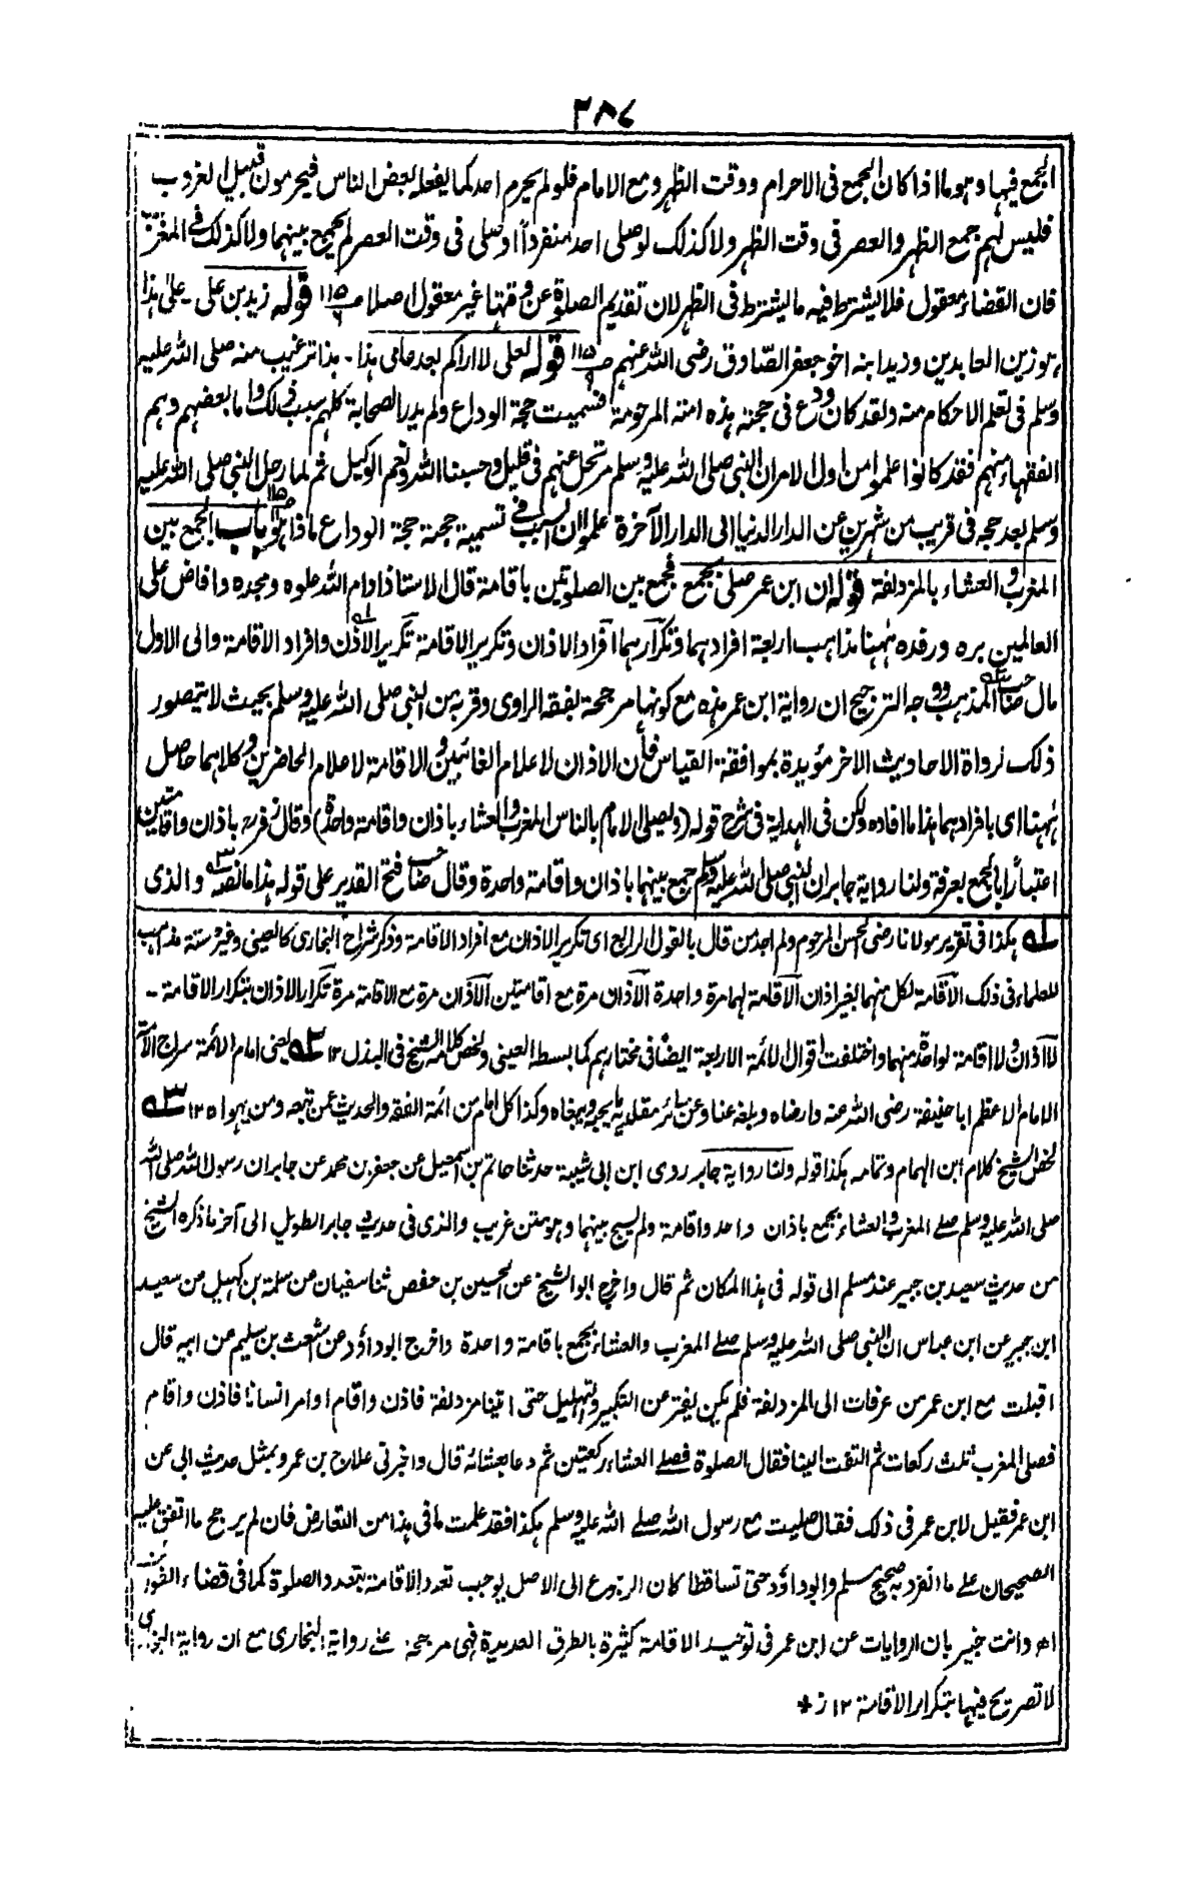 ٢٨٧
الجمع فيها وهو ما اذا كان الجمع فى الاحرام ووقت الظهر ومع الامام فلو لم يحرم احد كما يفعله بعض الناس فيحرمون قبيل الغروب
فليس لهم جمع الظهر والعصر فى وقت الظهر ولا كذلك لو صلى احد منفردا او صلى فى وقت العصر لم يجمع بينهما ولا كذلك فى المغرب
فان القضاء معقول فلا يشترط فيه ما يشترط فى الظهر لان تقديم الصلوة عن وقتها غير معقول اصلا ص ١١٥ قوله زيد بن على - على هذا
هو زين العابدين وزيد ابنه اخو جعفر الصادق رضى الله عنهم ص ١١٥ قوله لعلى لا اراكم بعد عامى هذا - هذا ترغيب منه صلى الله عليه
وسلم فى تعلم الاحكام منه ولقد كان ودع فى حجته هذه امته المرحومة فسميت حجة الوداع ولم يدر الصحابة كلهم سبب ذلك واما بعضهم وهم
الفقهاء منهم فقد كانوا علموا من اول الامر ان النبى صلى الله عليه وسلم مرتحل عنهم فى قليل وحسبنا الله ونعم الوكيل ثم لما رحل النبى صلى الله عليه
وسلم بعد حجه فى قريب من شهرين عن الدار الدنيا الى الدار الآخرة علموا ان السبب فى تسمية حجته حجة الوداع ماذا هو ص ١١٥ باب الجمع بين
المغرب والعشاء بالمزدلفة قوله ان ابن عمر صلى بجمع فجمع بين الصلوتين باقامة قال الاستاذ ادام الله علوه ومجده وافاض على
العالمين بره ورفده ههنا مذاهب اربعة افرادهما وتكرارهما افراد الاذان وتكرير الاقامة تكرير الاذن وافراد الاقامة والى الاول
مال صاحب المذهب ووجه الترجيح ان رواية ابن عمر هذه مع كونها مرجحة بفقه الراوى وقربه من النبى صلى الله عليه وسلم بحيث لا يتصور
ذلك لرواة الاحاديث الاخر مؤيدة بموافقة القياس فان الاذان لاعلام الغائبين والاقامة لاعلام الحاضرين وكلاهما حاصل
ههنا اى بافرادهما هذا ما افاده ولكن فى الهداية فى شرح قوله (ويصلى الامام بالناس المغرب والعشاء باذان واقامة واحدة) وقال زفر رح باذان واقامتين
اعتبارا بالجمع بعرفة ولنا رواية جابر ان النبى صلى الله عليه وسلم جمع بينهما باذان واقامة واحدة وقال صاحب فتح القدير على قوله هذا ما نصه والذى
له هكذا فى تقرير مولانا رضى الحسن المرحوم ولم اجد من قال بالقول الرابع اى تكرير الاذان مع افراد الاقامة وذكر شراح البخارى كالعينى وغيره ستة مذاهب
للعلماء فى ذلك الاقامة لكل منهما بغير اذان الاقامة لهما مرة واحدة الاذان مرة مع اقامتين الاذان مرة مع الاقامة مرة تكرار الاذان بتكرار الاقامة -
لا اذان ولا اقامة لواحد منهما واختلفت اقوال الائمة الاربعة ايضا فى مختارهم كما بسط العينى ولخص كلامه الشيخ فى البذل ١٢ ٢ه يعنى امام الائمة سراج الامة
الامام الاعظم ابا حنيفة رضى الله عنه وارضاه وبلغه عنا وعن سائر مقلديه ما يحبه ويرضاه وكذا كل امام من ائمة الفقه والحديث عن تبعه ومن يهواه ١٢ ٣ه
لخص الشيخ كلام ابن الهمام وتمامه هكذا قوله ولنا رواية جابر روى ابن ابى شيبة حدثنا حاتم بن اسمعيل عن جعفر بن محمد عن جابر ان رسول الله صلى الله
صلى الله عليه وسلم صلے المغرب والعشاء بجمع باذان واحد واقامة ولم يسبح بينهما وهو متن غريب والذى فى حديث جابر الطويل الى آخر ما ذكره الشيخ
من حديث سعيد بن جبير عند مسلم الى قوله فى هذا المكان ثم قال واخرج ابو الشيخ عن الحسين بن حفص ثنا سفيان من سلمة بن كهيل من سعيد
ابن جبير عن ابن عباس ان النبى صلى الله عليه وسلم صلے المغرب والعشاء بجمع باقامة واحدة واخرج ابو داؤد عن اشعث بن سليم من ابيه قال
اقبلت مع ابن عمر من عرفات الى المزدلفة فلم يكن يفتر عن التكبير والتهليل حتى اتينا مزدلفة فاذن واقام او امر انسانا فاذن واقام
فصلى المغرب ثلث ركعات ثم التفت الينا فقال الصلوة فصلے العشاء ركعتين ثم دعا بعشائه قال واخبرنى علاج بن عمرو بمثل حديث ابى عن
ابن عمر فقيل لابن عمر فى ذلك فقال صليت مع رسول الله صلے الله عليه وسلم هكذا فقد علمت ما فى هذا من التعارض فان لم يرجح ما اتفق عليه
الصحيحان علے ما انفرد به صحيح مسلم وابو داؤد حتى تساقطا كان الرجوع الى الاصل يوجب تعدد الاقامة بتعدد الصلوة كما فى قضاء الفوائت
اه وانت خبير بان الروايات عن ابن عمر فى توحيد الاقامة كثيرة بالطرق العديدة فهى مرجحة علے رواية البخارى مع ان رواية البخارى
لا تصريح فيها بتكرار الاقامة ١٢ ز *